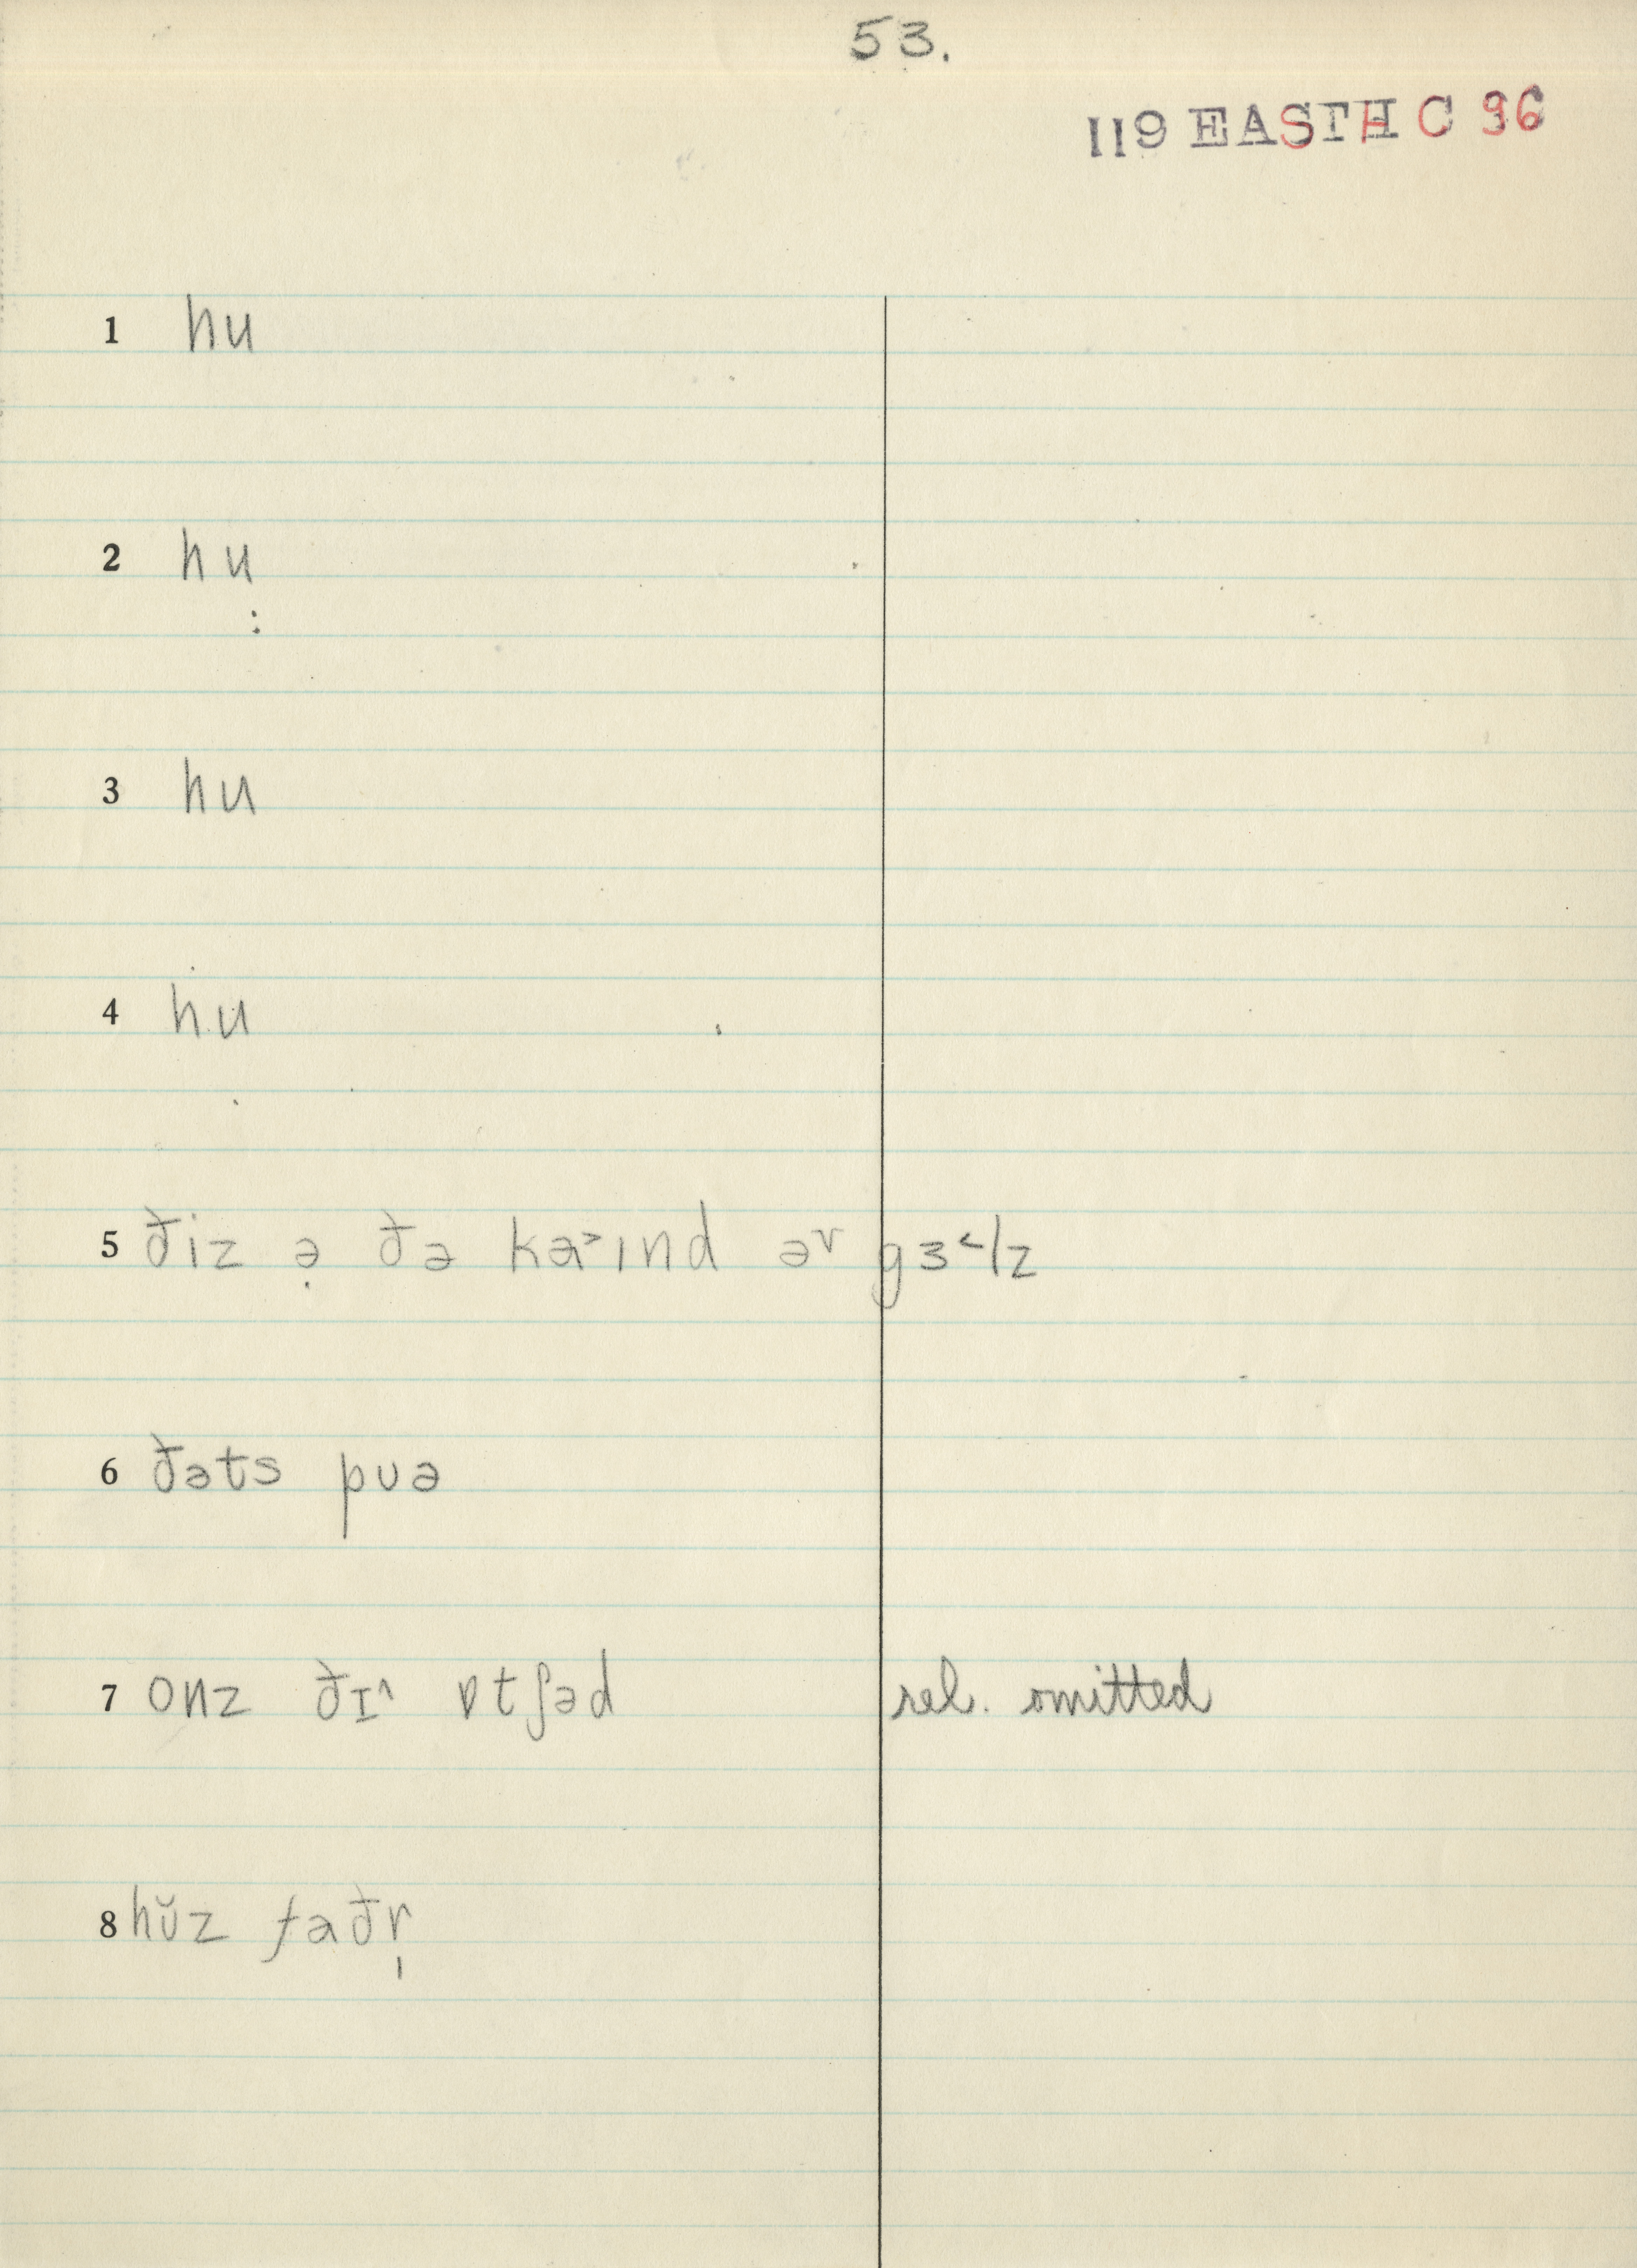 53.
119 EASTH C 36
1 hu
2 hu
3 hu
4 hu
5 ðiz ə̣ ðə ka˃ɪnd əv gɜ˂lz
6 ðəts puə
7 onz ðɪ^ ɒtʃəd rel. omitted
8 hŭz faðr̩